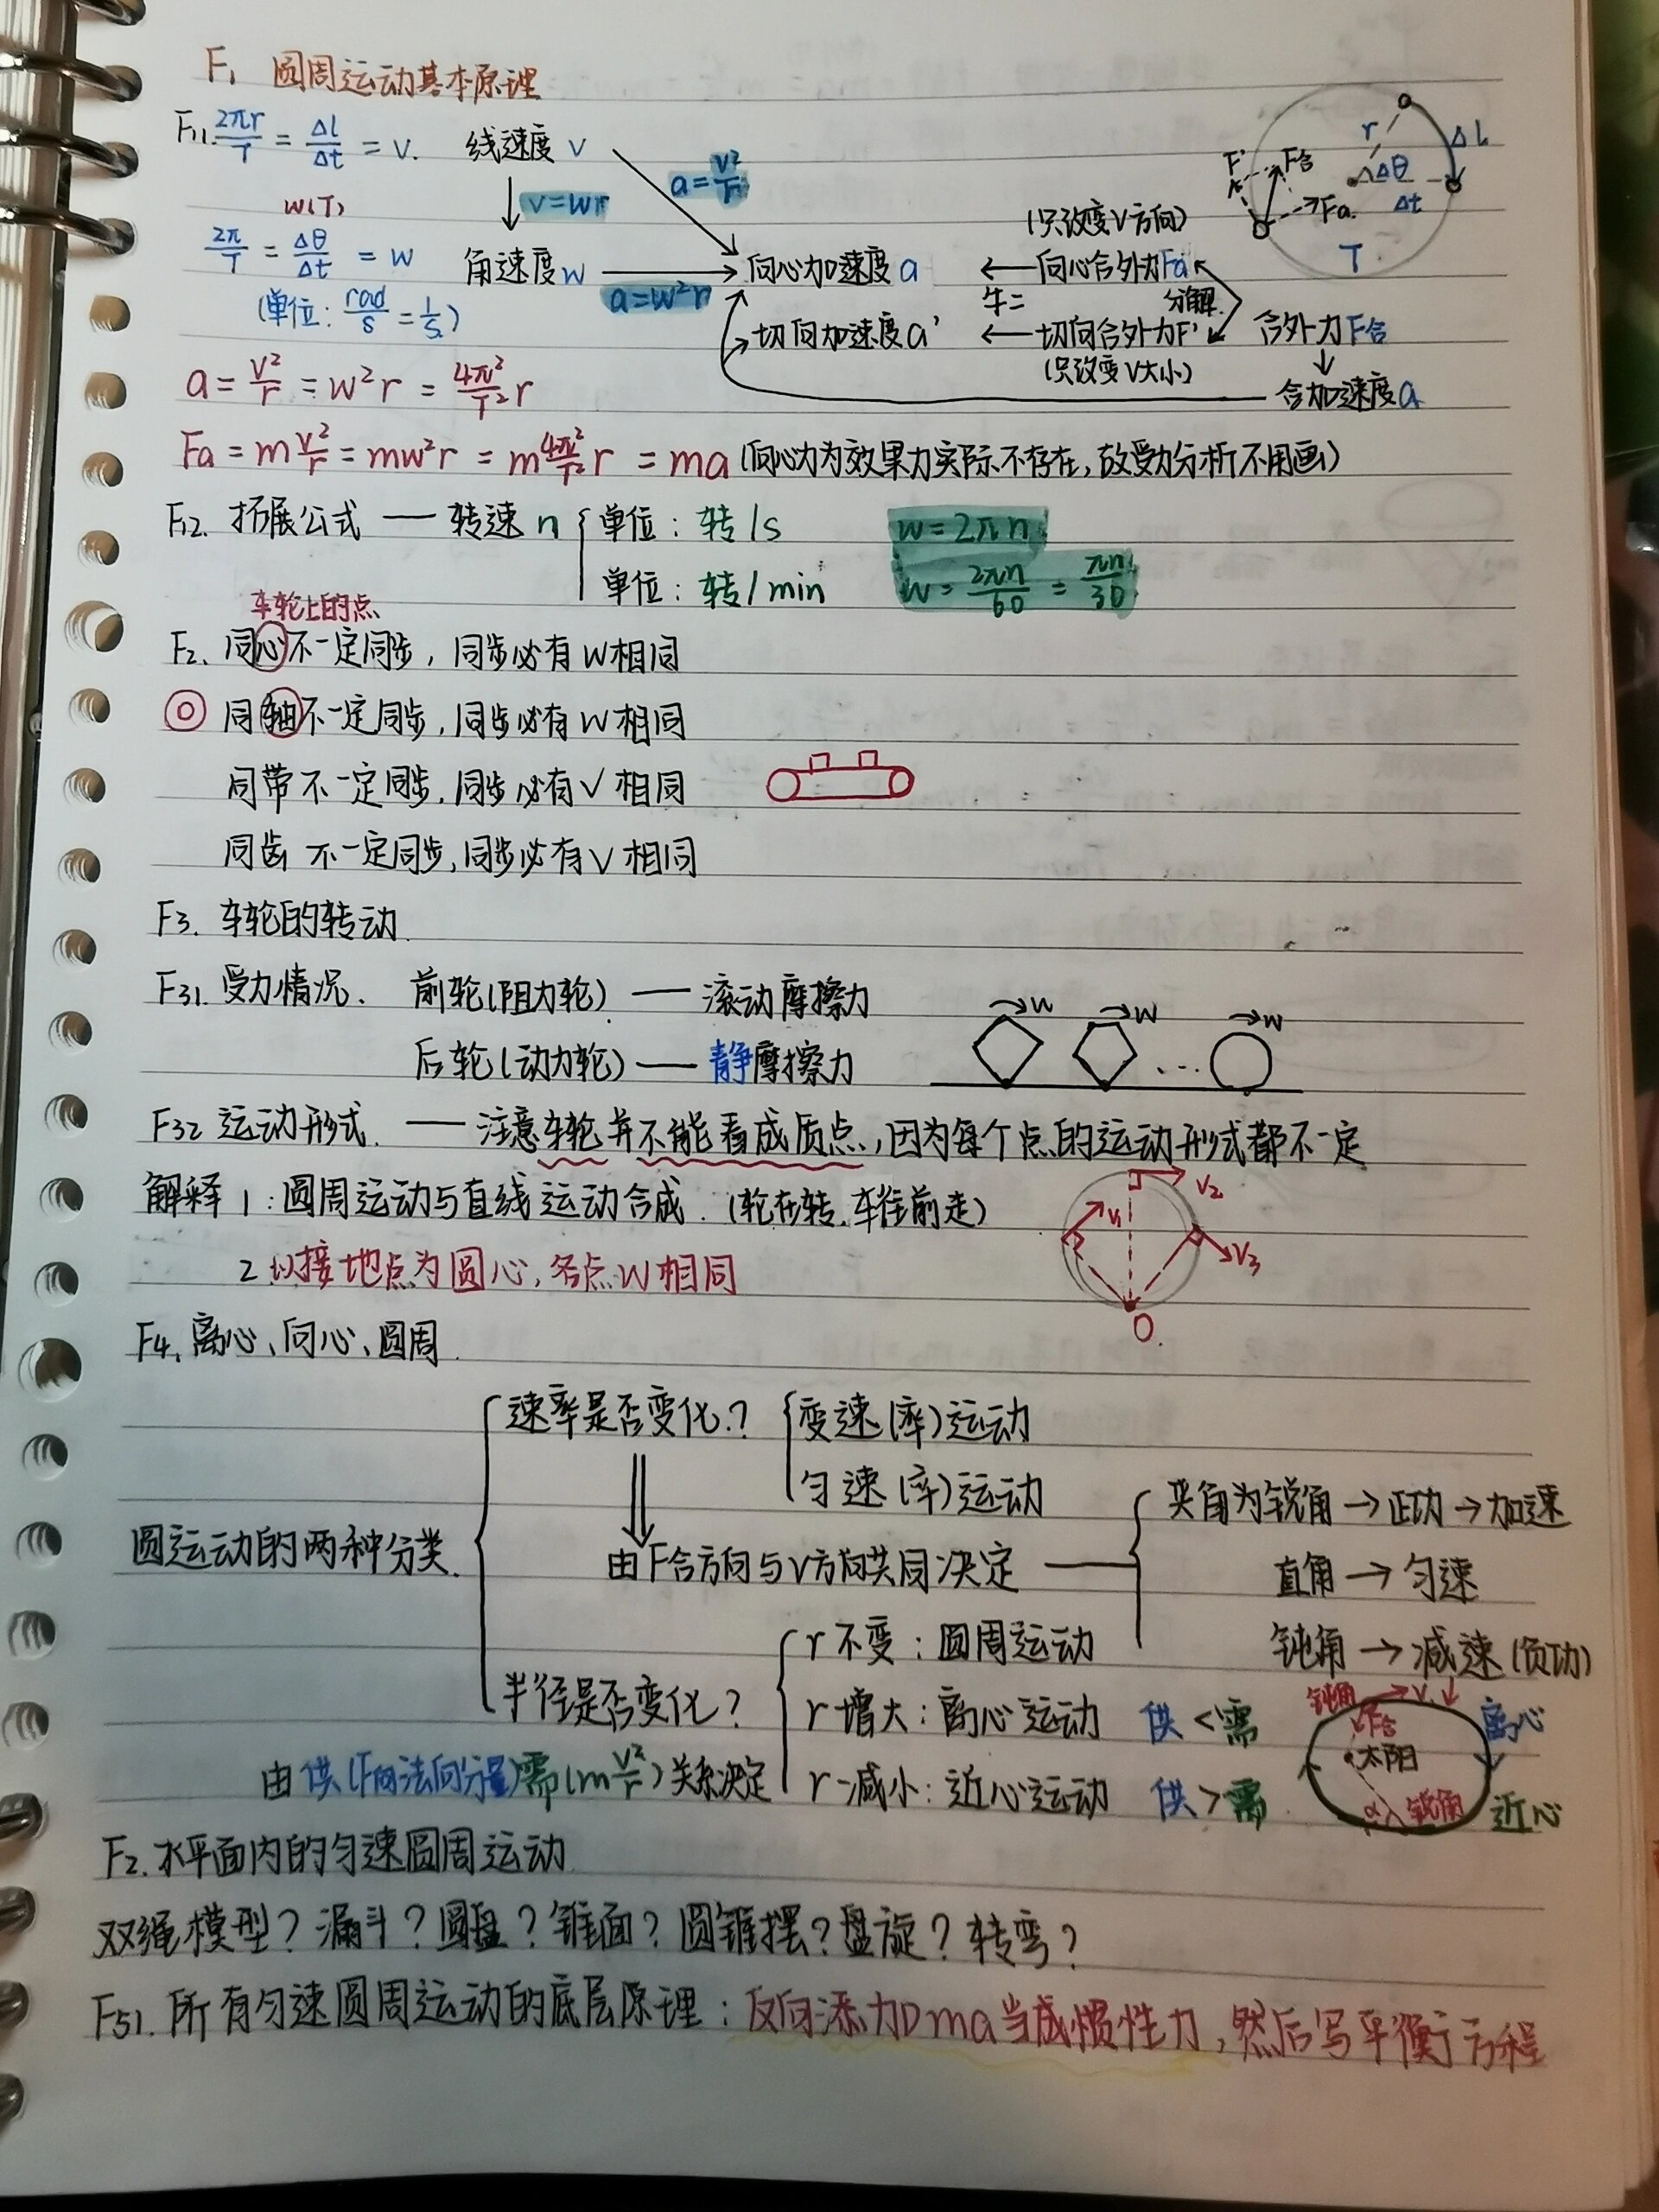 F1 圆周运动基本原理
F11. 2πr/T = Δl/Δt = v. 线速度 v
a=v²/r
v=wr
r Δl
Δθ Δt
T
F' F合 Fa
w(T)
2π/T = Δθ/Δt = w 角速度 w → 向心加速度 a ← 向心合外力Fa
(只改变V方向)
(单位: rad/s = 1/s) a=w²r
牛二 分解
切向加速度a' ← 切向合外力F' 合外力F合
(只改变V大小)
合加速度a
a = v²/r = w²r = 4π²/T² r
Fa = m v²/r = mw²r = m 4π²/T² r = ma (向心力为效果力实际不存在,故受力分析不用画)
F12. 拓展公式 — 转速 n { 单位: 转/s w=2πn
单位: 转/min w = 2πn/60 = πn/30
车轮上的点
F2. 同心不一定同步, 同步必有W相同
同轴不一定同步, 同步必有W相同
同带不一定同步, 同步必有V相同
同齿不一定同步, 同步必有V相同
F3. 车轮的转动
F31. 受力情况. 前轮(阻力轮) — 滚动摩擦力
w w w
后轮(动力轮) — 静摩擦力
...
F32 运动形式. — 注意车轮并不能看成质点,因为每个点的运动形式都不一定
解释 1: 圆周运动与直线运动合成. (轮在转,车往前走)
V1 V2 V3
2 以接地点为圆心, 各点W相同
O.
F4. 离心、向心、圆周.
速率是否变化? { 变速(率)运动
匀速(率)运动
圆运动的两种分类.
由F合方向与V方向共同决定 —
夹角为锐角 → 正功 → 加速
直角 → 匀速
钝角 → 减速(负功)
半径是否变化?
r 不变: 圆周运动
r 增大: 离心运动 供 < 需
r 减小: 近心运动 供 > 需
由供(F向法向分量)需(m v²/r)关系决定
钝角 V 离心
F合
太阳
α 锐角 近心
F2. 水平面内的匀速圆周运动
双绳模型? 漏斗? 圆盘? 锥面? 圆锥摆? 盘旋? 转弯?
F51. 所有匀速圆周运动的底层原理: 反向添加ma当成惯性力,然后写平衡方程